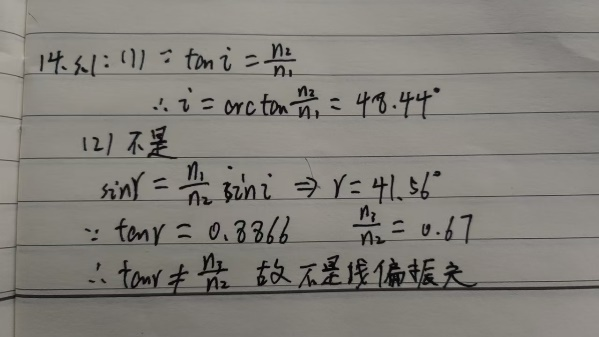 14. 解: (1) ∵ tan i = n₂/n₁
∴ i = arctan n₂/n₁ = 48.44°
(2) 不是
sinγ = n₁/n₂ sin i ⇒ γ = 41.56°
∵ tanγ = 0.8866 n₃/n₂ = 0.67
∴ tanγ ≠ n₃/n₂ 故不是线偏振光